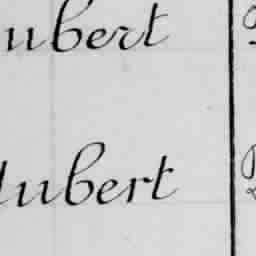 ubert
ubert